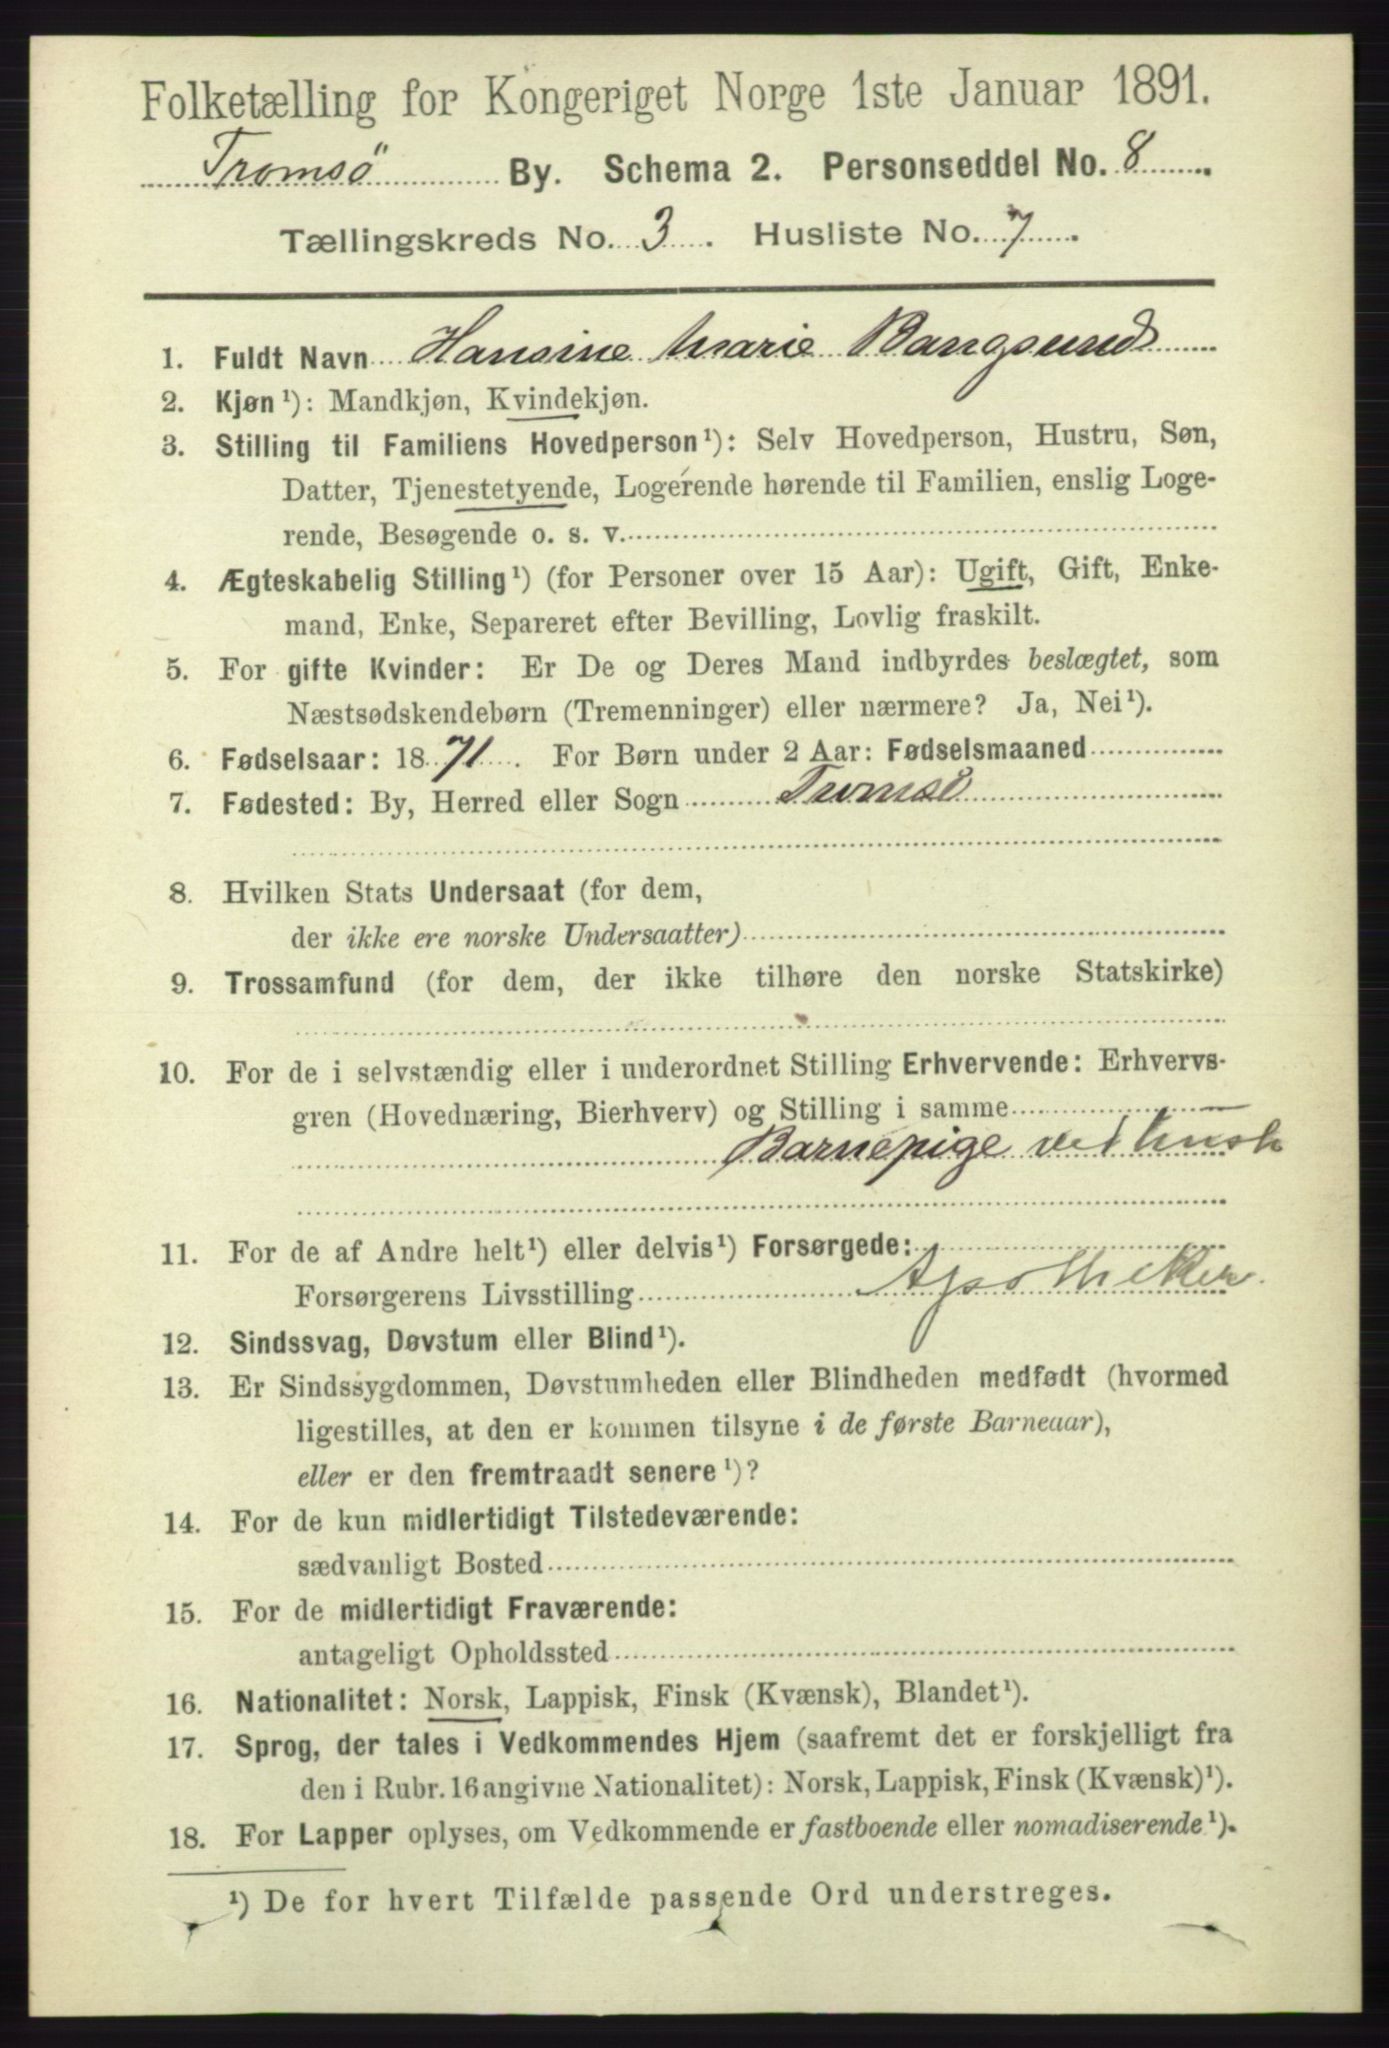 Folketælling for Kongeriget Norge 1ste Januar 1891.
Tromsö By. Schema 2. Personseddel No. 8
Tællingskreds No. 3. Husliste No. 7.
1. Fuldt Navn Hansine Marie Bangsund
2. Kjøn¹): Mandkjøn, Kvindekjøn.
3. Stilling til Familiens Hovedperson¹): Selv Hovedperson, Hustru, Søn,
Datter, Tjenestetyende, Logerende hørende til Familien, enslig Loge-
rende, Besøgende o. s. v.
4. Ægteskabelig Stilling¹) (for Personer over 15 Aar): Ugift, Gift, Enke-
mand, Enke, Separeret efter Bevilling, Lovlig fraskilt.
5. For gifte Kvinder: Er De og Deres Mand indbyrdes beslægtet, som
Næstsødskendebørn (Tremenninger) eller nærmere? Ja, Nei¹).
6. Fødselsaar: 1871. For Børn under 2 Aar: Fødselsmaaned
7. Fødested: By, Herred eller Sogn Tromsö
8. Hvilken Stats Undersaat (for dem,
der ikke ere norske Undersaatter)
9. Trossamfund (for dem, der ikke tilhøre den norske Statskirke)
10. For de i selvstændig eller i underordnet Stilling Erhvervende: Erhvervs-
gren (Hovednæring, Bierhverv) og Stilling i samme
Barnepige ved
11. For de af Andre helt¹) eller delvis¹) Forsørgede:
Forsørgerens Livsstilling Apotheker.
12. Sindssvag, Døvstum eller Blind¹).
13. Er Sindssygdommen, Døvstumheden eller Blindheden medfødt (hvormed
ligestilles, at den er kommen tilsyne i de første Barneaar),
eller er den fremtraadt senere¹)?
14. For de kun midlertidigt Tilstedeværende:
sædvanligt Bosted
15. For de midlertidigt Fraværende:
antageligt Opholdssted
16. Nationalitet: Norsk, Lappisk, Finsk (Kvænsk), Blandet¹).
17. Sprog, der tales i Vedkommendes Hjem (saafremt det er forskjelligt fra
den i Rubr. 16 angivne Nationalitet): Norsk, Lappisk, Finsk (Kvænsk)¹).
18. For Lapper oplyses, om Vedkommende er fastboende eller nomadiserende¹).
¹) De for hvert Tilfælde passende Ord understreges.